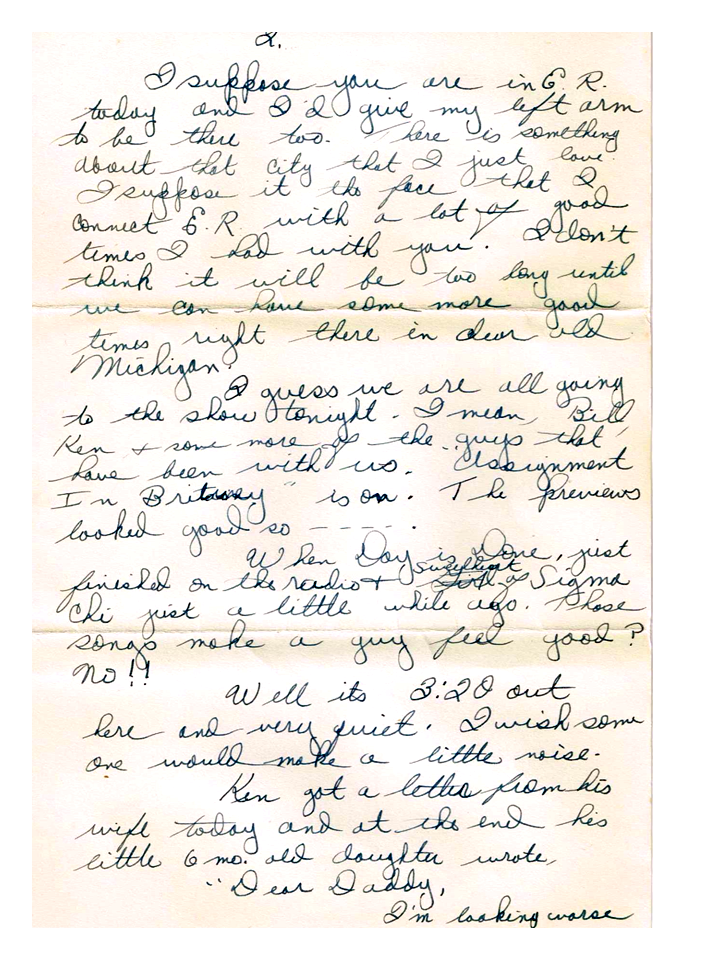 2.
I suppose you are in E. R.
today and I'd give my left arm
to be there too. There is something
about that city that I just love.
I suppose it the face that I
connect E.R. with a lot of good
times I had with you. I don't
think it will be too long until
we can have some more good
times right there in dear old
Michigan.
I guess we are all going
to the show tonight. I mean, Bill,
Ken + some more of the guys that
have been with us. "Assignment
In Brittany" is on. The previews
looked good so ----- .
When Day is Done, just
finished on the radio + Sweetheart of Sigma
Chi just a little while ago. Those
songs make a guy feel good?
No!!
Well its 3:20 out
here and very quiet. I wish some
one would make a little noise.
Ken got a letter from his
wife today and at the end his
little 6 mo. old daughter wrote,
"Dear Daddy,
I'm looking worse